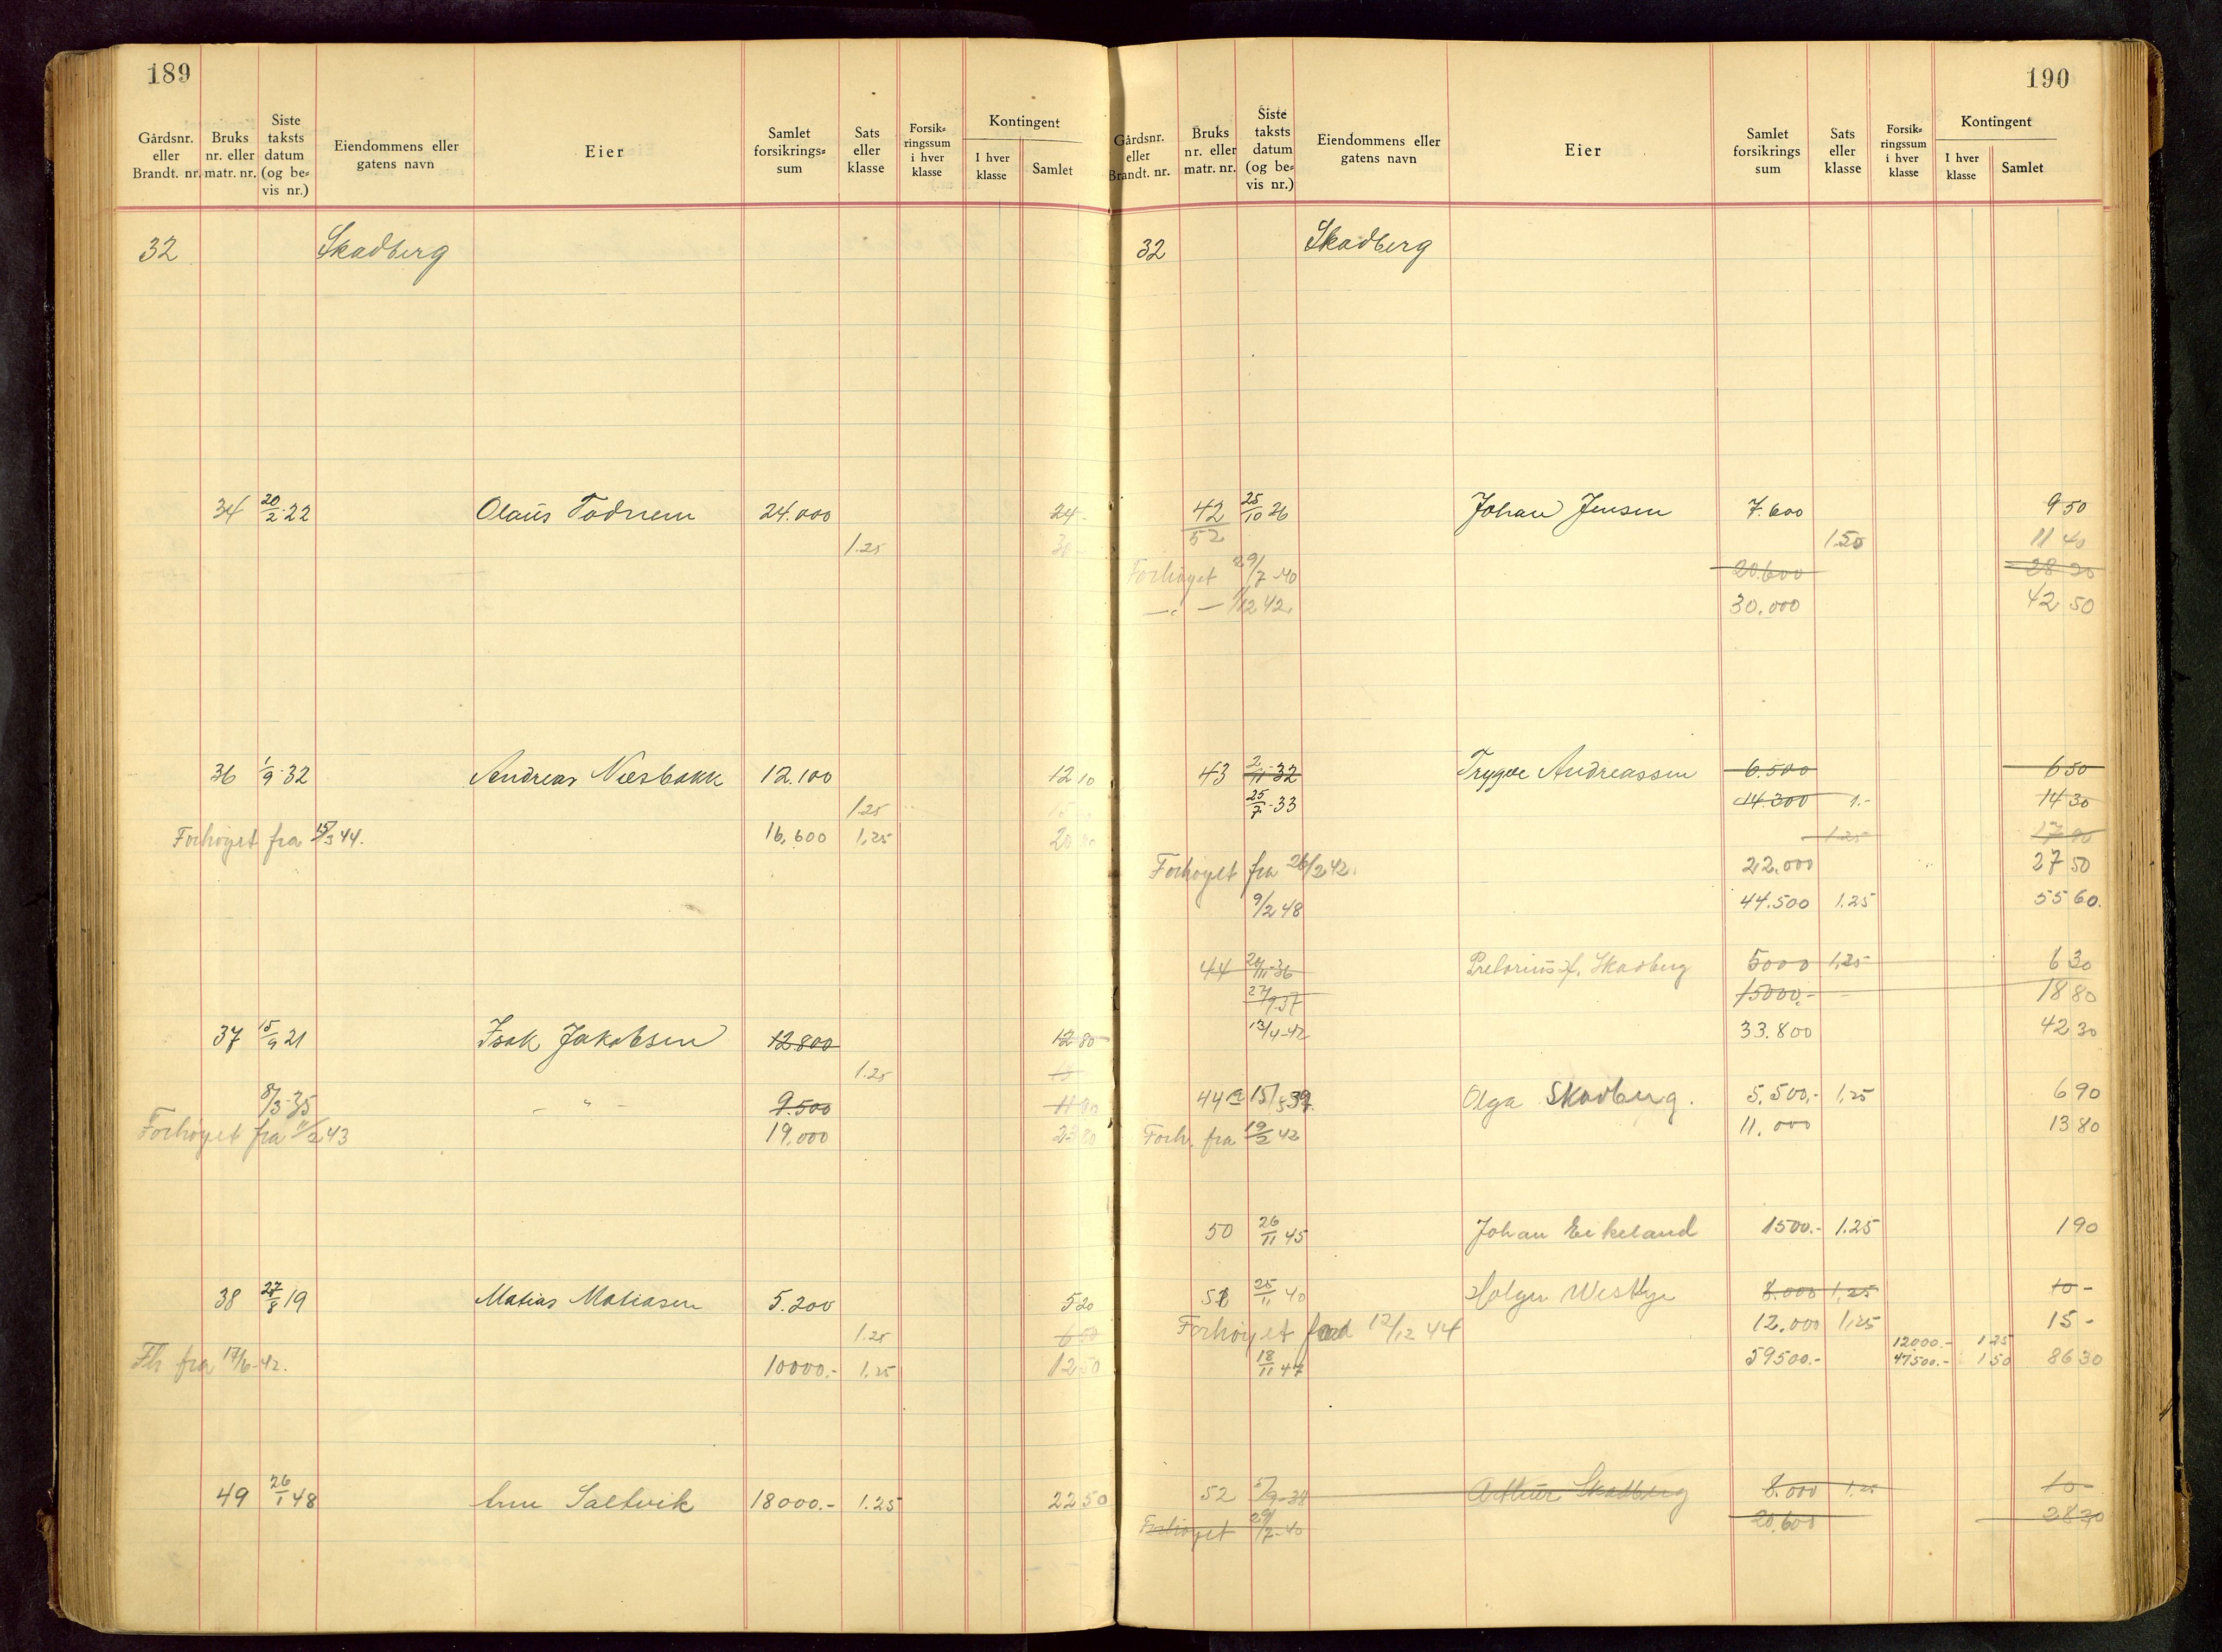 189
Gårdsnr. eller Brandt. nr. | Bruks nr. eller matr. nr. | Siste taksts datum (og be= vis nr.) | Eiendommens eller gatens navn | Eier | Samlet forsikrings= sum | Sats eller klasse | Forsik= ringssum i hver klasse | Kontingent I hver klasse | Samlet
32 Skadberg
34 20/2-22 Olaus Todnem 24.000 24.-
1.25 30
36 1/9-32 Andreas Næsbakk 12.100 12 10
1.25 15
Forhøyet fra 15/3 44. 16,600 1,25 20
37 15/9 21 Isak Jakobsen 12.800 12 80
1.25
8/3-35 - " - 9.500 11 90
Forhøyet fra 11/2 43 19.000 23 80
38 27/8 19 Matias Matiasen 5.200 5 20
1.25 6 50
Fh fra 17/6-42. 10000.- 1.25 12 50
49 26/1 48 Saltvik 18000.- 1.25 22 50
190
Gårdsnr. eller Brandt. nr. | Bruks nr. eller matr. nr. | Siste taksts datum (og be= vis nr.) | Eiendommens eller gatens navn | Eier | Samlet forsikrings sum | Sats eller klasse | Forsik= ringssum i hver klasse | Kontingent I hver klasse | Samlet
32 Skadberg
42 25/10 26 Johan Jensen 7.600 9 50
52 1.50 11 40
Forhøyet 29/7-40 20.600 28 20
-"- 1/12 42. 30.000 42 50
43 2/11-32 Trygve Andreassen 6.500 6 50
25/7-33 14.300 1.- 14 30
1.25 17 90
Forhøyet fra 26/2 42. 22.000 27 50
9/2 48 44.500 1.25 55 60.
44 26/11-36 Skadberg 5000 1,25 6 30
27/9 37 15000.- 18 80
13/4-42 33.800 42 30
44a 15/5 39 Olga Skadberg. 5,500,- 1,25 6 90
Forh. fra 19/2 42 11.000 13 80
50 26/11 45 Johan Eikeland 1500.- 1.25 1 90
51 25/11 40 Holger Westbye 8.000 1,25 10 -
Forhøyet fra 12/12 44 12.000 1,25 15 -
12000.- 1 25
18/11 47 59500.- 47500.- 1 50 86 30
52 5/9-38 Arthur Skadberg 8.000 1.25 10 -
Forhøyet 29/7-40 20.600 28 30